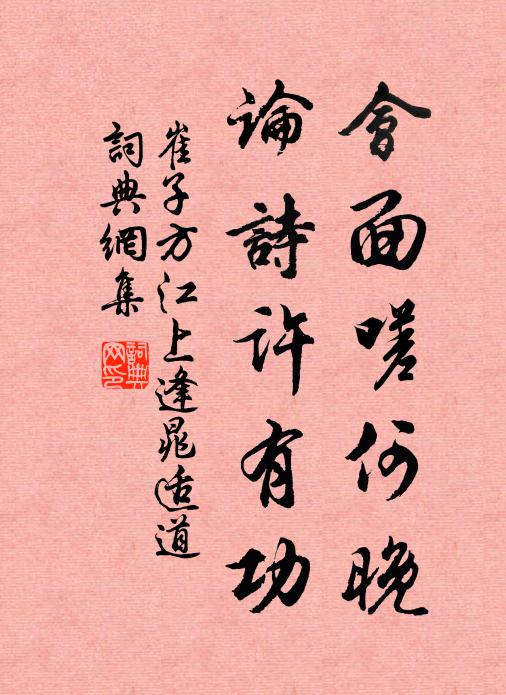 會面嗟何晚
論詩許有功
崔子方江上逢晁适道
詞典網集
詞典网印